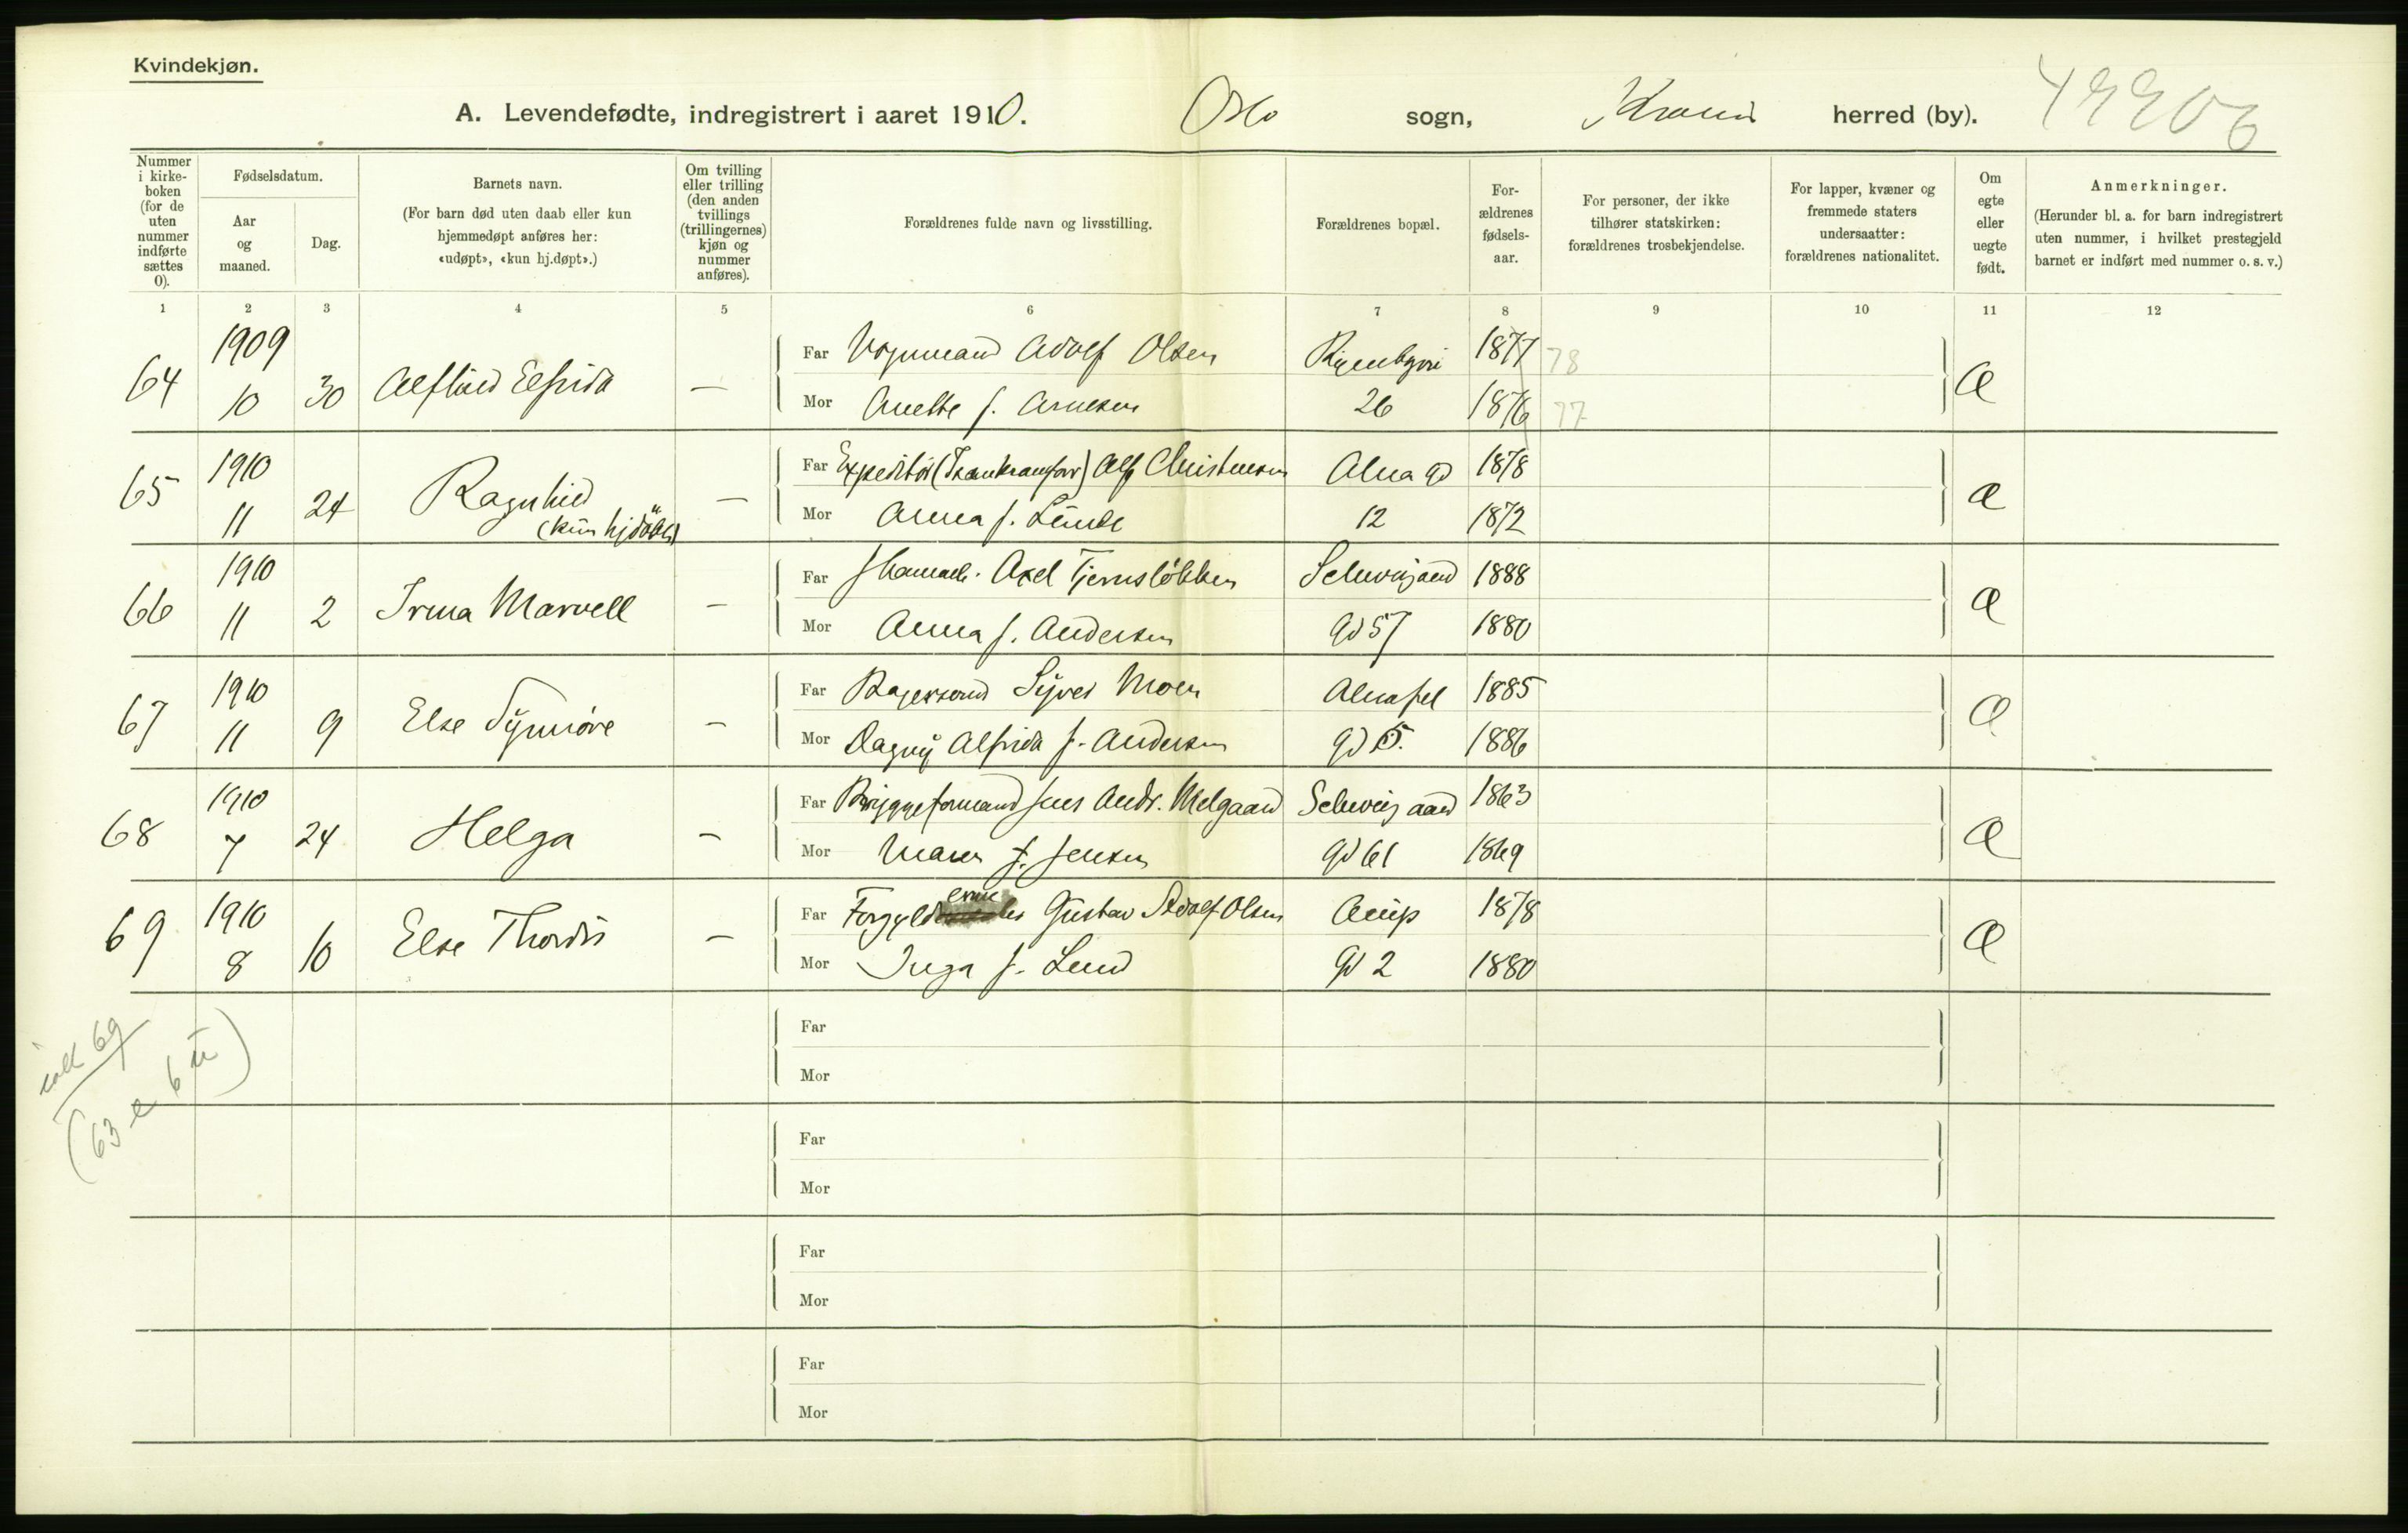 Kvindekjøn.
A. Levendefødte, indregistrert i aaret 1910. Oslo sogn, herred (by).
Nummer i kirke-boken (for de uten nummer indførte sættes 0).
Fødselsdatum.
Aar og maaned.
Dag.
Barnets navn.
(For barn død uten daab eller kun hjemmedøpt anføres her: «udøpt», «kun hj.døpt».)
Om tvilling eller trilling (den anden tvillings (trillingernes) kjøn og nummer anføres).
Forældrenes fulde navn og livsstilling.
Forældrenes bopæl.
For-ældrenes fødsels-aar.
For personer, der ikke tilhører statskirken: forældrenes trosbekjendelse.
For lapper, kvæner og fremmede staters undersaatter: forældrenes nationalitet.
Om egte eller uegte født.
Anmerkninger.
(Herunder bl. a. for barn indregistrert uten nummer, i hvilket prestegjeld barnet er indført med nummer o. s. v.)
1 2 3 4 5 6 7 8 9 10 11 12
64 1909 10 30 Elfrida —
Far Vognmand Adolf Olsen 1877 78
Mor Anette f. Arnesen 26 1876 77
65 1910 11 24 Ragnhild —
Far Expeditør Alf Christensen Alna gd 1878
Mor Anna f. Lunde 12 1872
66 1910 11 2 Irma Marvell —
Far Axel Tjernsløkken Schweigaard 1888
Mor Anna f. Andersen gd 57 1880
67 1910 11 9 Else Synnöve —
Far Bagersvend Syver Moen Alnafel 1885
Mor Dagny Alfrida f. Andersen gd 5. 1886
68 1910 7 24 Helga —
Far Bryggeformand Jens Andr. Melgaard Schweigaard 1863
Mor Maren f. Jensen gd 61 1869
69 1910 8 10 Else Thordis —
Far Gustav Adolf Olsen 1878
Mor Inga f. Lund gd 2 1880
Far
Mor
Far
Mor
Far
Mor
Far
Mor
ialt 69
(63 e 6 u)